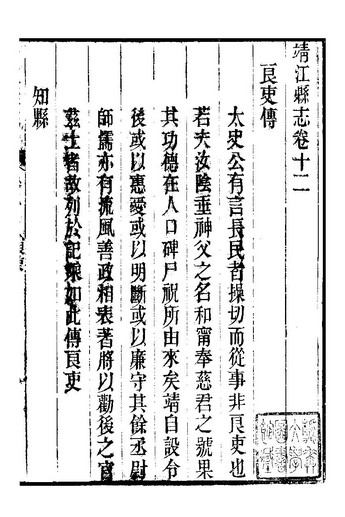 靖江縣志卷十二
良吏傳
太史公有言長民者操切而從事非良吏也
若夫汝陰垂神父之名和甯奉慈君之號果
其功德在人口碑尸祝所由來矣靖自設令
後或以惠愛或以明斷或以廉守其餘丞尉
師儒亦有流風善政相表著將以勸後之官
茲土者故列於記操如此傳良吏
知縣